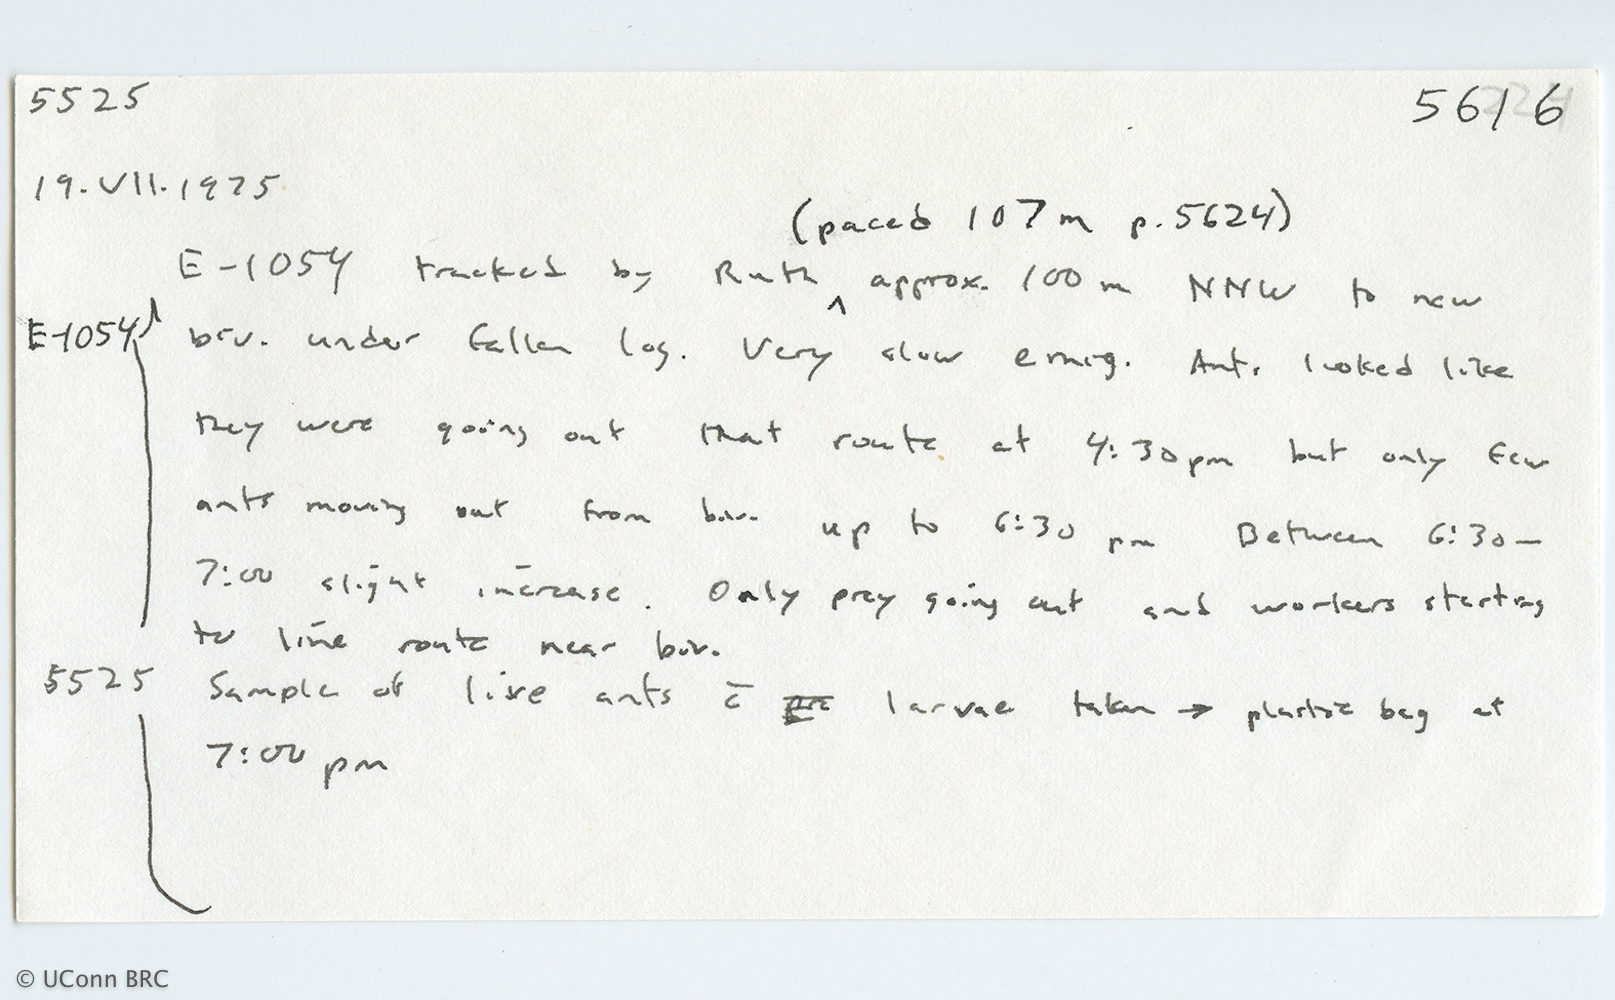 5525
5616
19.VII.1975
(paced 107 m p. 5624)
E-1054 tracked by Ruth ^ approx. 100 m NNW to new
E-1054 biv. under fallen log. Very slow emig. Ants looked like
they were going out that route at 4:30 pm but only few
ants moving out from biv. up to 6:30 pm Between 6:30-
7:00 slight increase. Only prey going out and workers starting
to line route near biv.
5525 Sample of live ants c̄ larvae taken → plastic bag at
7:00 pm
© UConn BRC